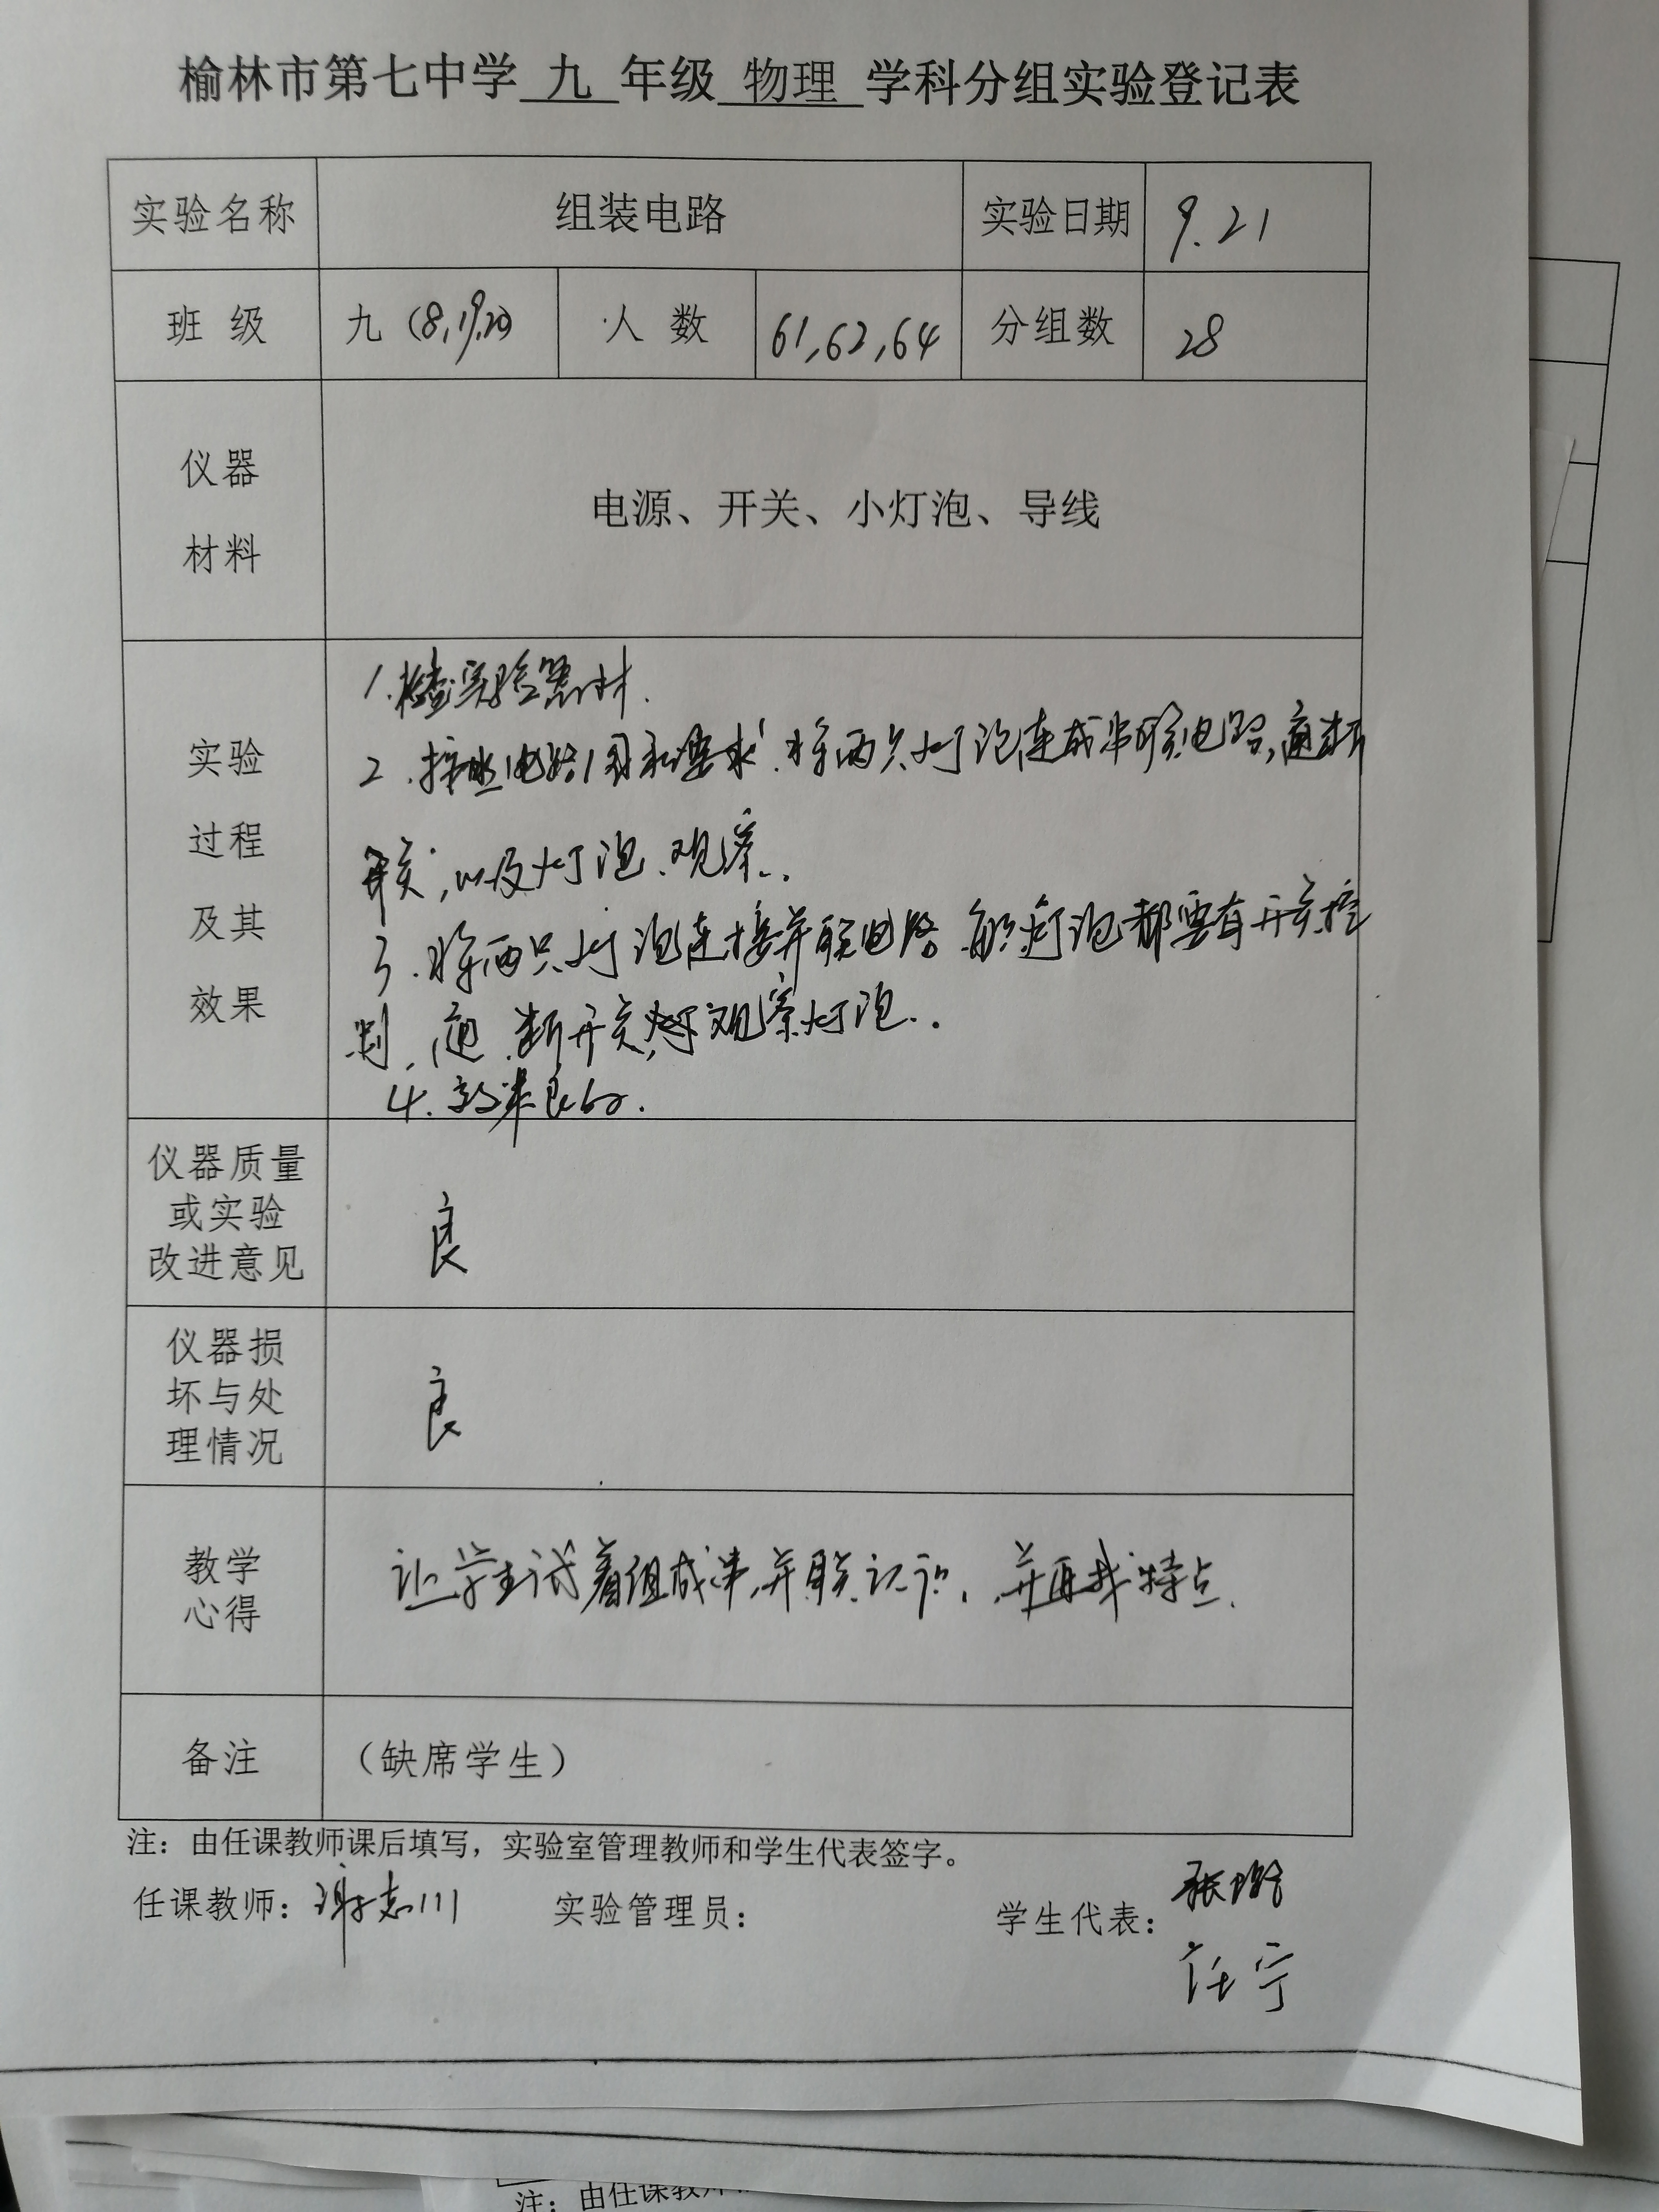 榆林市第七中学 九 年级 物理 学科分组实验登记表
实验名称 组装电路 实验日期 9.21
班 级 九(8,19,20) 人 数 61,62,64 分组数 28
仪器
材料
电源、开关、小灯泡、导线
实验
过程
及其
效果
1.检查实验器材.
2.按照电路图和要求.将两只灯泡连成串联电路,通断
开关,以及灯泡.观察..
3.将两只灯泡连接并联电路 每只灯泡都要有开关控
制.通.断开关,观察灯泡..
4.效果良好.
仪器质量
或实验
改进意见
良
仪器损
坏与处
理情况
良
教学
心得
让学生试着组成串,并联.认识,并再找特点.
备注 (缺席学生)
注:由任课教师课后填写,实验室管理教师和学生代表签字。
任课教师:谢志川 实验管理员: 学生代表:张
任宁
注:由任课教